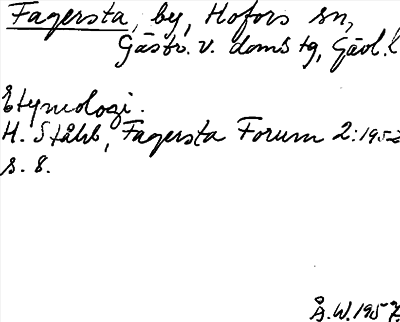 Fagersta, by, Hofors sn,
Gästr. v. doms tg, Gävl. l
Etymologi.
H. Ståhl, Fagersta Forum 2: 1952
s. 8.
Å. W. 1957.